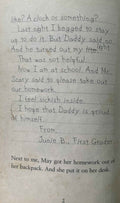 like? A clock or something?
Last night I begged to stay
up to do it. But Daddy said no.
And he turned out my light.
That was not helpful.
Now I am at school. And Mr.
Scary said to please take out
our homework.
I feel sickish inside.
I hope that Daddy is proud
of himself.
From,
Junie B., First Grader
Next to me, May got her homework out of
her backpack. And she put it on her desk.
2